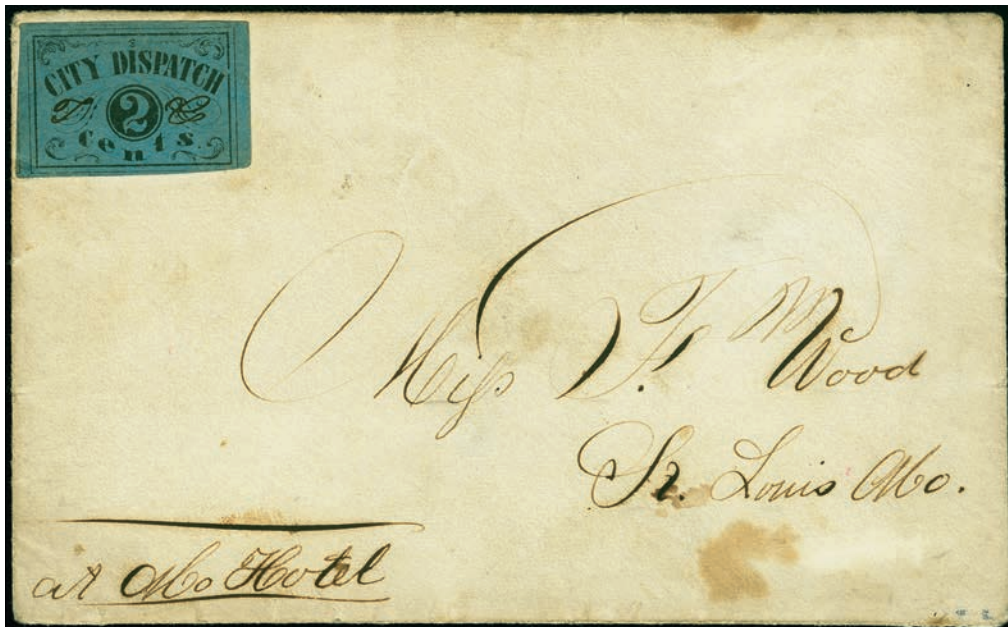 CITY DISPATCH
2
Cents.
Miss F. Wood
St. Louis Mo.
at Mo Hotel